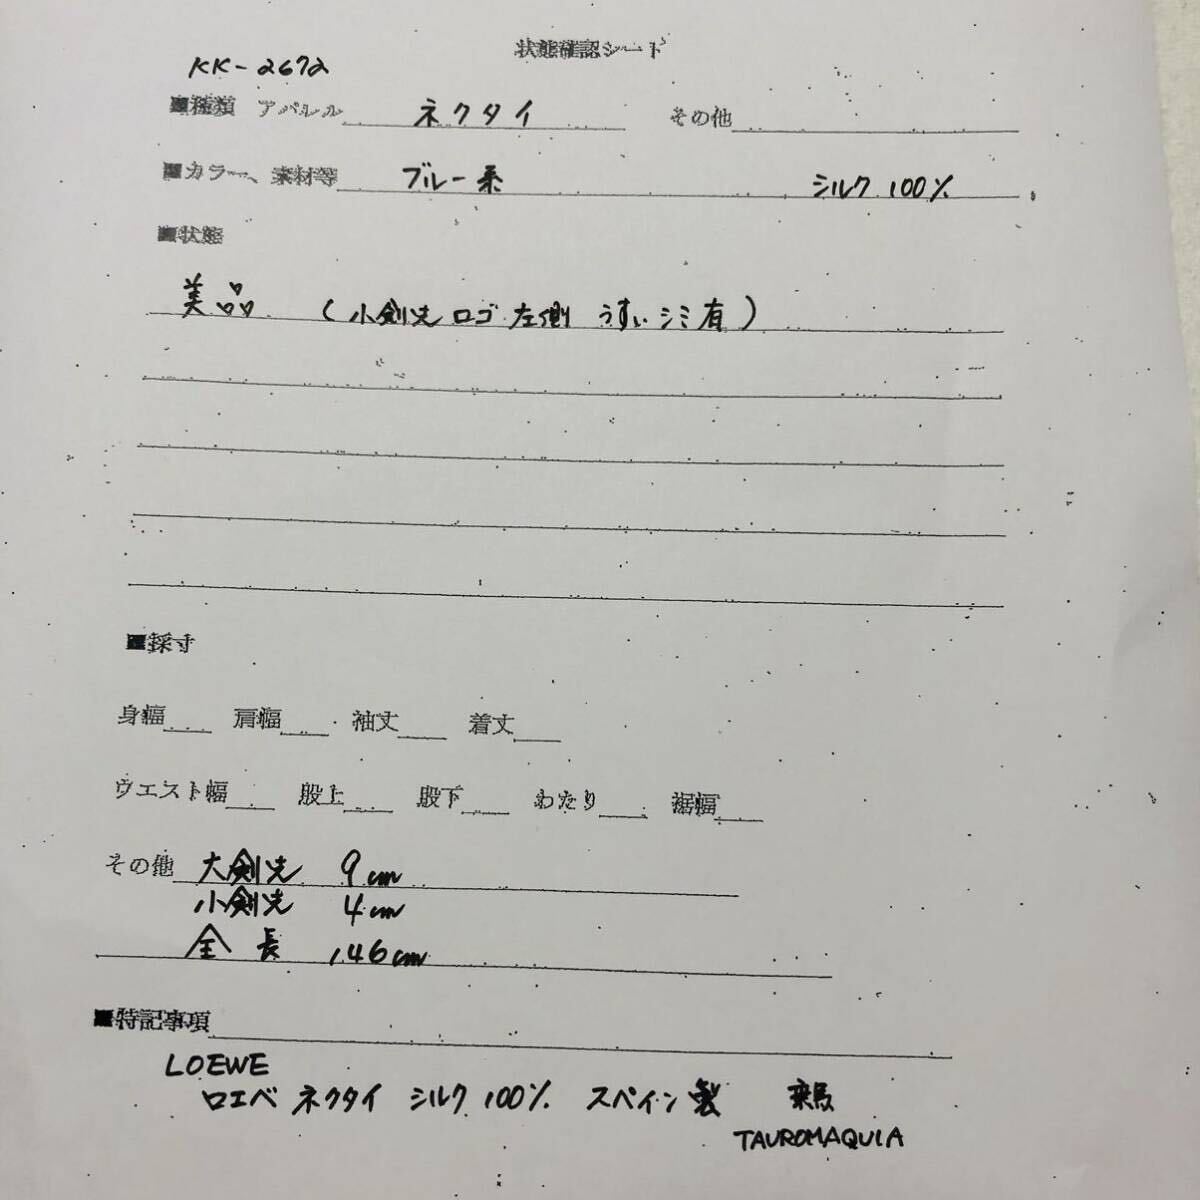 状態確認シート
KK-2672
■種類 アパレル ネクタイ その他
■カラー、素材等 ブルー系 シルク 100%
■状態
美品 (小剣先 ロゴ 左側 うすいシミ有)
■採寸
身幅 肩幅 袖丈 着丈
ウエスト幅 股上 股下 わたり 裾幅
その他 大剣先 9cm
小剣先 4cm
全長 146cm
■特記事項
LOEWE
ロエベ ネクタイ シルク 100% スペイン製 乗馬
TAUROMAQUIA